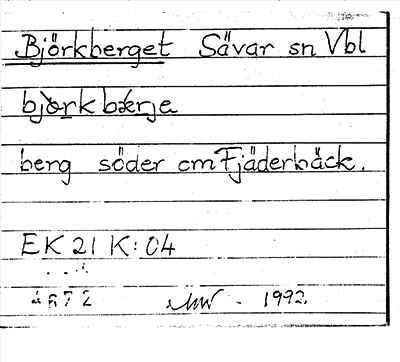 Björkberget Sävar sn Vbl
bjørkbærje
berg söder om Fjäderbäck.
EK 21 K:04
72 - 1992